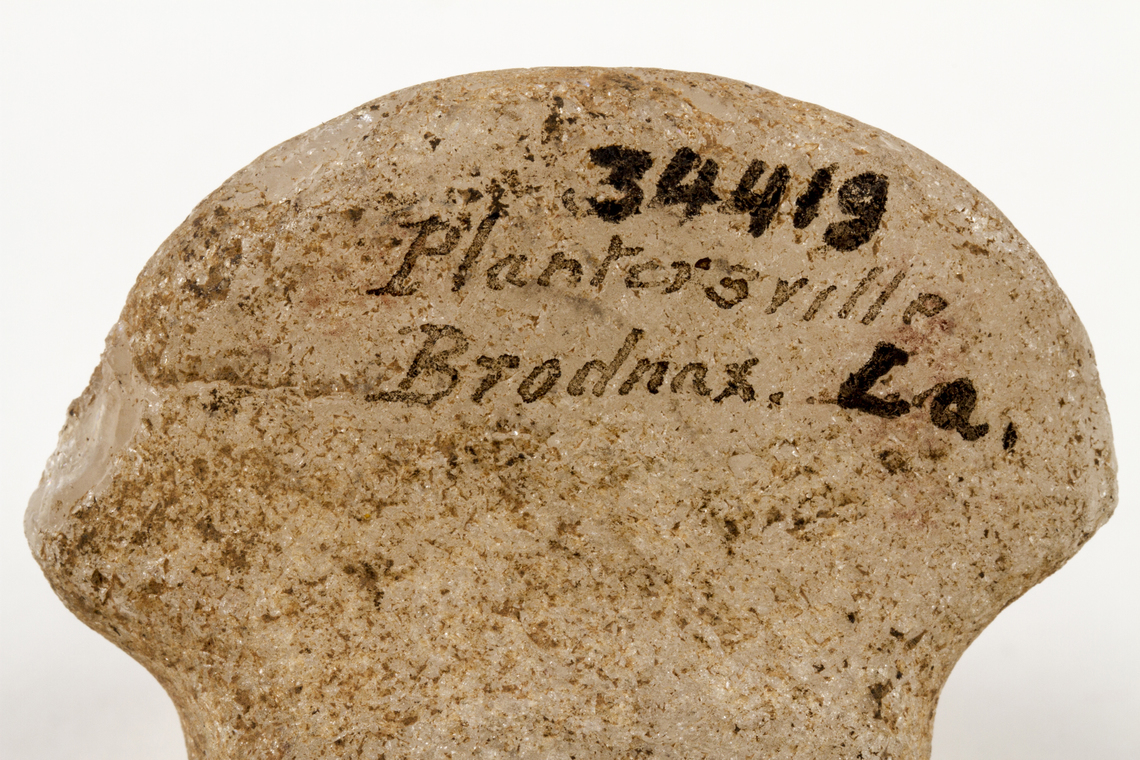 34419
Plantersville
Brodnax. La.